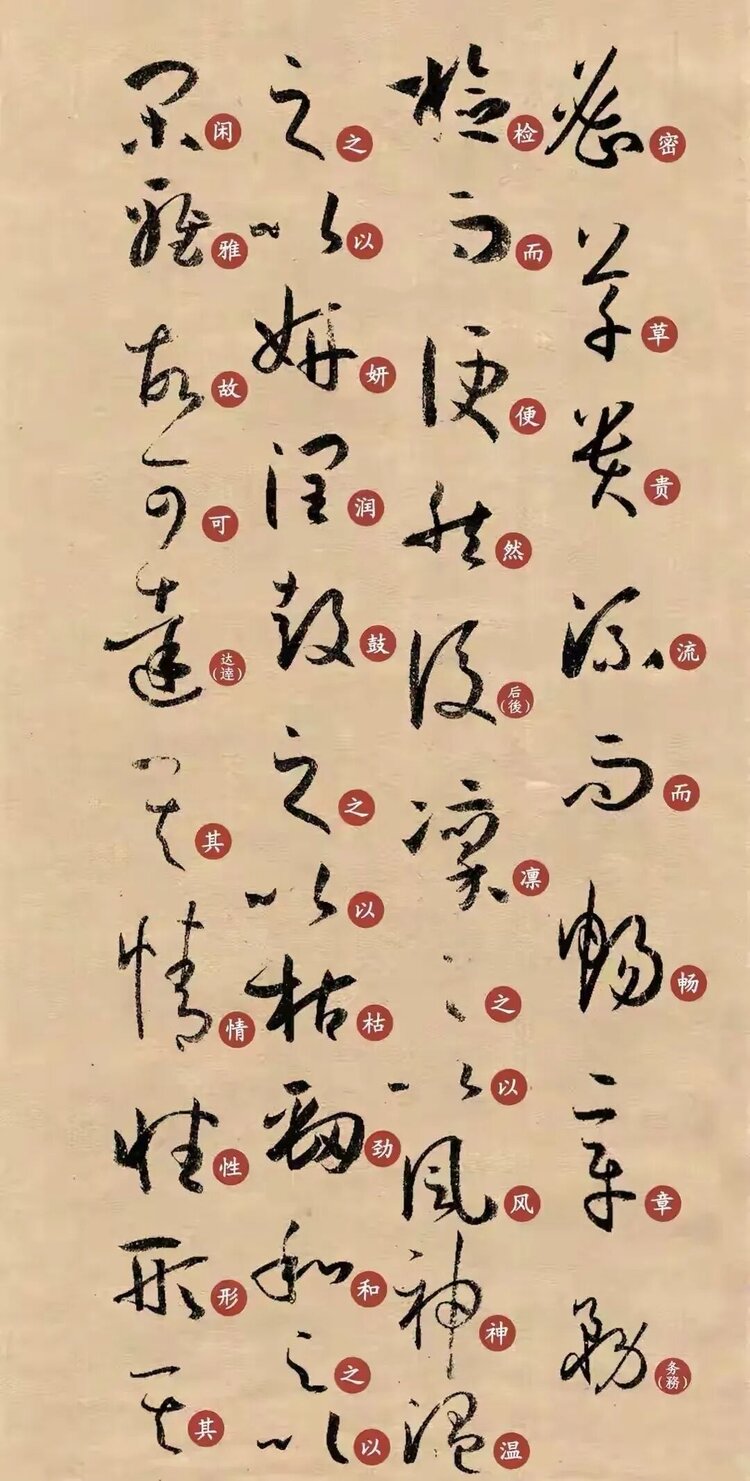 密草贵流而畅章务(務)
检而便然后(後)凛之以风神温
之以妍润鼓之以枯劲和之以
闲雅故可达(達)其情性形其